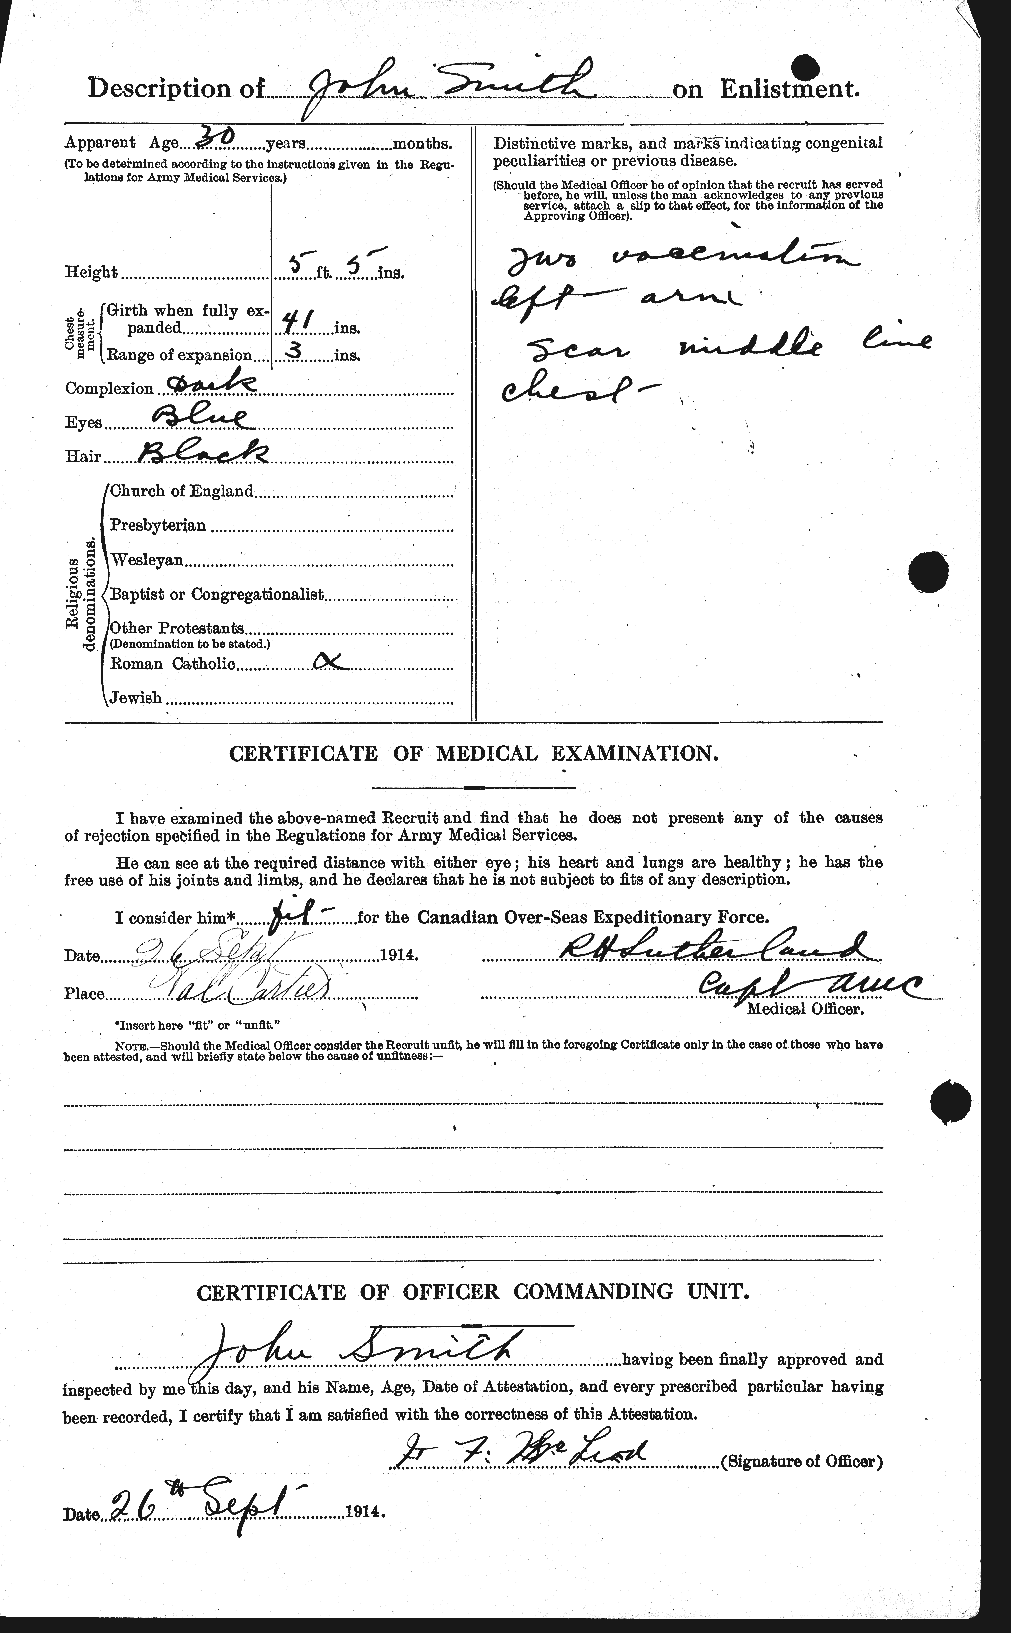 Description of John Smith on Enlistment.
Apparent Age 30 years months.
(To be determined according to the instructions given in the Regu-
lations for Army Medical Services.)
Height 5 ft. 5 ins.
Chest measure-ment.
Girth when fully ex-
panded 41 ins.
Range of expansion 3 ins.
Complexion Dark
Eyes Blue
Hair Black
Religious denominations.
Church of England
Presbyterian
Wesleyan
Baptist or Congregationalist
Other Protestants
(Denomination to be stated.)
Roman Catholic x
Jewish
Distinctive marks, and marks indicating congenital
peculiarities or previous disease.
(Should the Medical Officer be of opinion that the recruit has served
before, he will, unless the man acknowledges to any previous
service, attach a slip to that effect, for the information of the
Approving Officer).
Two vaccination
left arm
Scar middle line
chest
CERTIFICATE OF MEDICAL EXAMINATION.
I have examined the above-named Recruit and find that he does not present any of the causes
of rejection specified in the Regulations for Army Medical Services.
He can see at the required distance with either eye; his heart and lungs are healthy; he has the
free use of his joints and limbs, and he declares that he is not subject to fits of any description.
I consider him* fit for the Canadian Over-Seas Expeditionary Force.
Date 26 Sept 1914.
R H Sutherland
Place Val Cartier
Capt AMC
Medical Officer.
*Insert here "fit" or "unfit."
NOTE.—Should the Medical Officer consider the Recruit unfit, he will fill in the foregoing Certificate only in the case of those who have
been attested, and will briefly state below the cause of unfitness:—
CERTIFICATE OF OFFICER COMMANDING UNIT.
John Smith having been finally approved and
inspected by me this day, and his Name, Age, Date of Attestation, and every prescribed particular having
been recorded, I certify that I am satisfied with the correctness of this Attestation.
F. McLeod (Signature of Officer)
Date 26th Sept 1914.